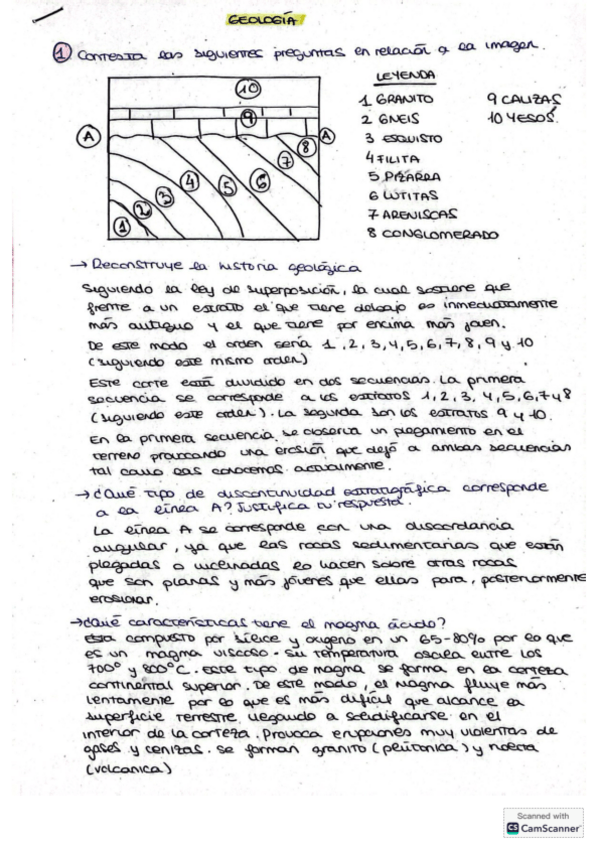 GEOLOGÍA
1 Contesta las siguientes preguntas en relación a la imagen.
LEYENDA
1 GRANITO
2 GNEIS
3 ESQUISTO
4 FILITA
5 PIZARRA
6 LUTITAS
7 ARENISCAS
8 CONGLOMERADO
9 CALIZAS
10 YESOS
10
9
A
A
8
7
6
5
4
3
2
1
→ Reconstruye la historia geológica
Siguiendo la ley de superposición, la cual sostiene que
frente a un estrato el que tiene debajo es inmediatamente
más antiguo y el que tiene por encima más joven.
De este modo el orden sería 1, 2, 3, 4, 5, 6, 7, 8, 9 y 10
(siguiendo este mismo orden)
Este corte está dividido en dos secuencias. La primera
secuencia se corresponde a los estratos 1, 2, 3, 4, 5, 6, 7 y 8
(siguiendo este orden). La segunda son los estratos 9 y 10.
En la primera secuencia, se observa un plegamiento en el
terreno provocando una erosión que dejó a ambas secuencias
tal como las conocemos actualmente.
→ ¿Qué tipo de discontinuidad estratigráfica corresponde
a la línea A? Justifica tu respuesta.
La línea A se corresponde con una discordancia
angular, ya que las rocas sedimentarias que están
plegadas o inclinadas lo hacen sobre otras rocas
que son planas y más jóvenes que ellas para, posteriormente
erosionar.
→ ¿Qué características tiene el magma ácido?
Está compuesto por sílice y oxígeno en un 65-80% por lo que
es un magma viscoso. Su temperatura oscila entre los
700° y 800°C. Este tipo de magma se forma en la corteza
continental superior. De este modo, el magma fluye más
lentamente por lo que es más difícil que alcance la
superficie terrestre llegando a solidificarse en el
interior de la corteza. Provoca erupciones muy violentas de
gases y cenizas. Se forman granito (plutónica) y riolita
(volcánica)
Scanned with
CS CamScanner